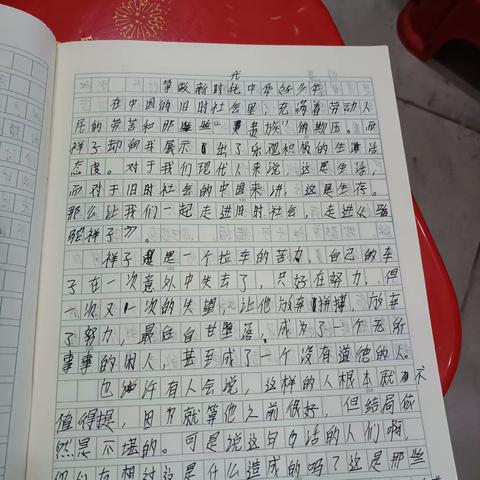 争做新时代中华好少年
在中国的旧时社会里，充满着劳动人
民的劳苦和那些"贵族"的欺压。而
祥子却向我展示出了乐观积极的生活
态度。对于我们现代人来说，这是生活，
而对于旧时社会的中国来讲，这是生存。
那么让我们一起走进旧时社会，走进《骆
驼祥子》。
祥子是一个拉车的苦力，自己的车
子在一次意外中失去了，只好在努力，但
一次又一次的失望，让他放弃拼搏，放弃
了努力，最后自甘堕落，成为了一个无所
事事的闲人，甚至成了一个没有道德的人。
也许有人会说，这样的人根本就不
值得提，因为就算他之前很好，但结局依
然是不堪的。可是说这句话的人们啊，
你们有想过这是什么造成的吗？这是那些